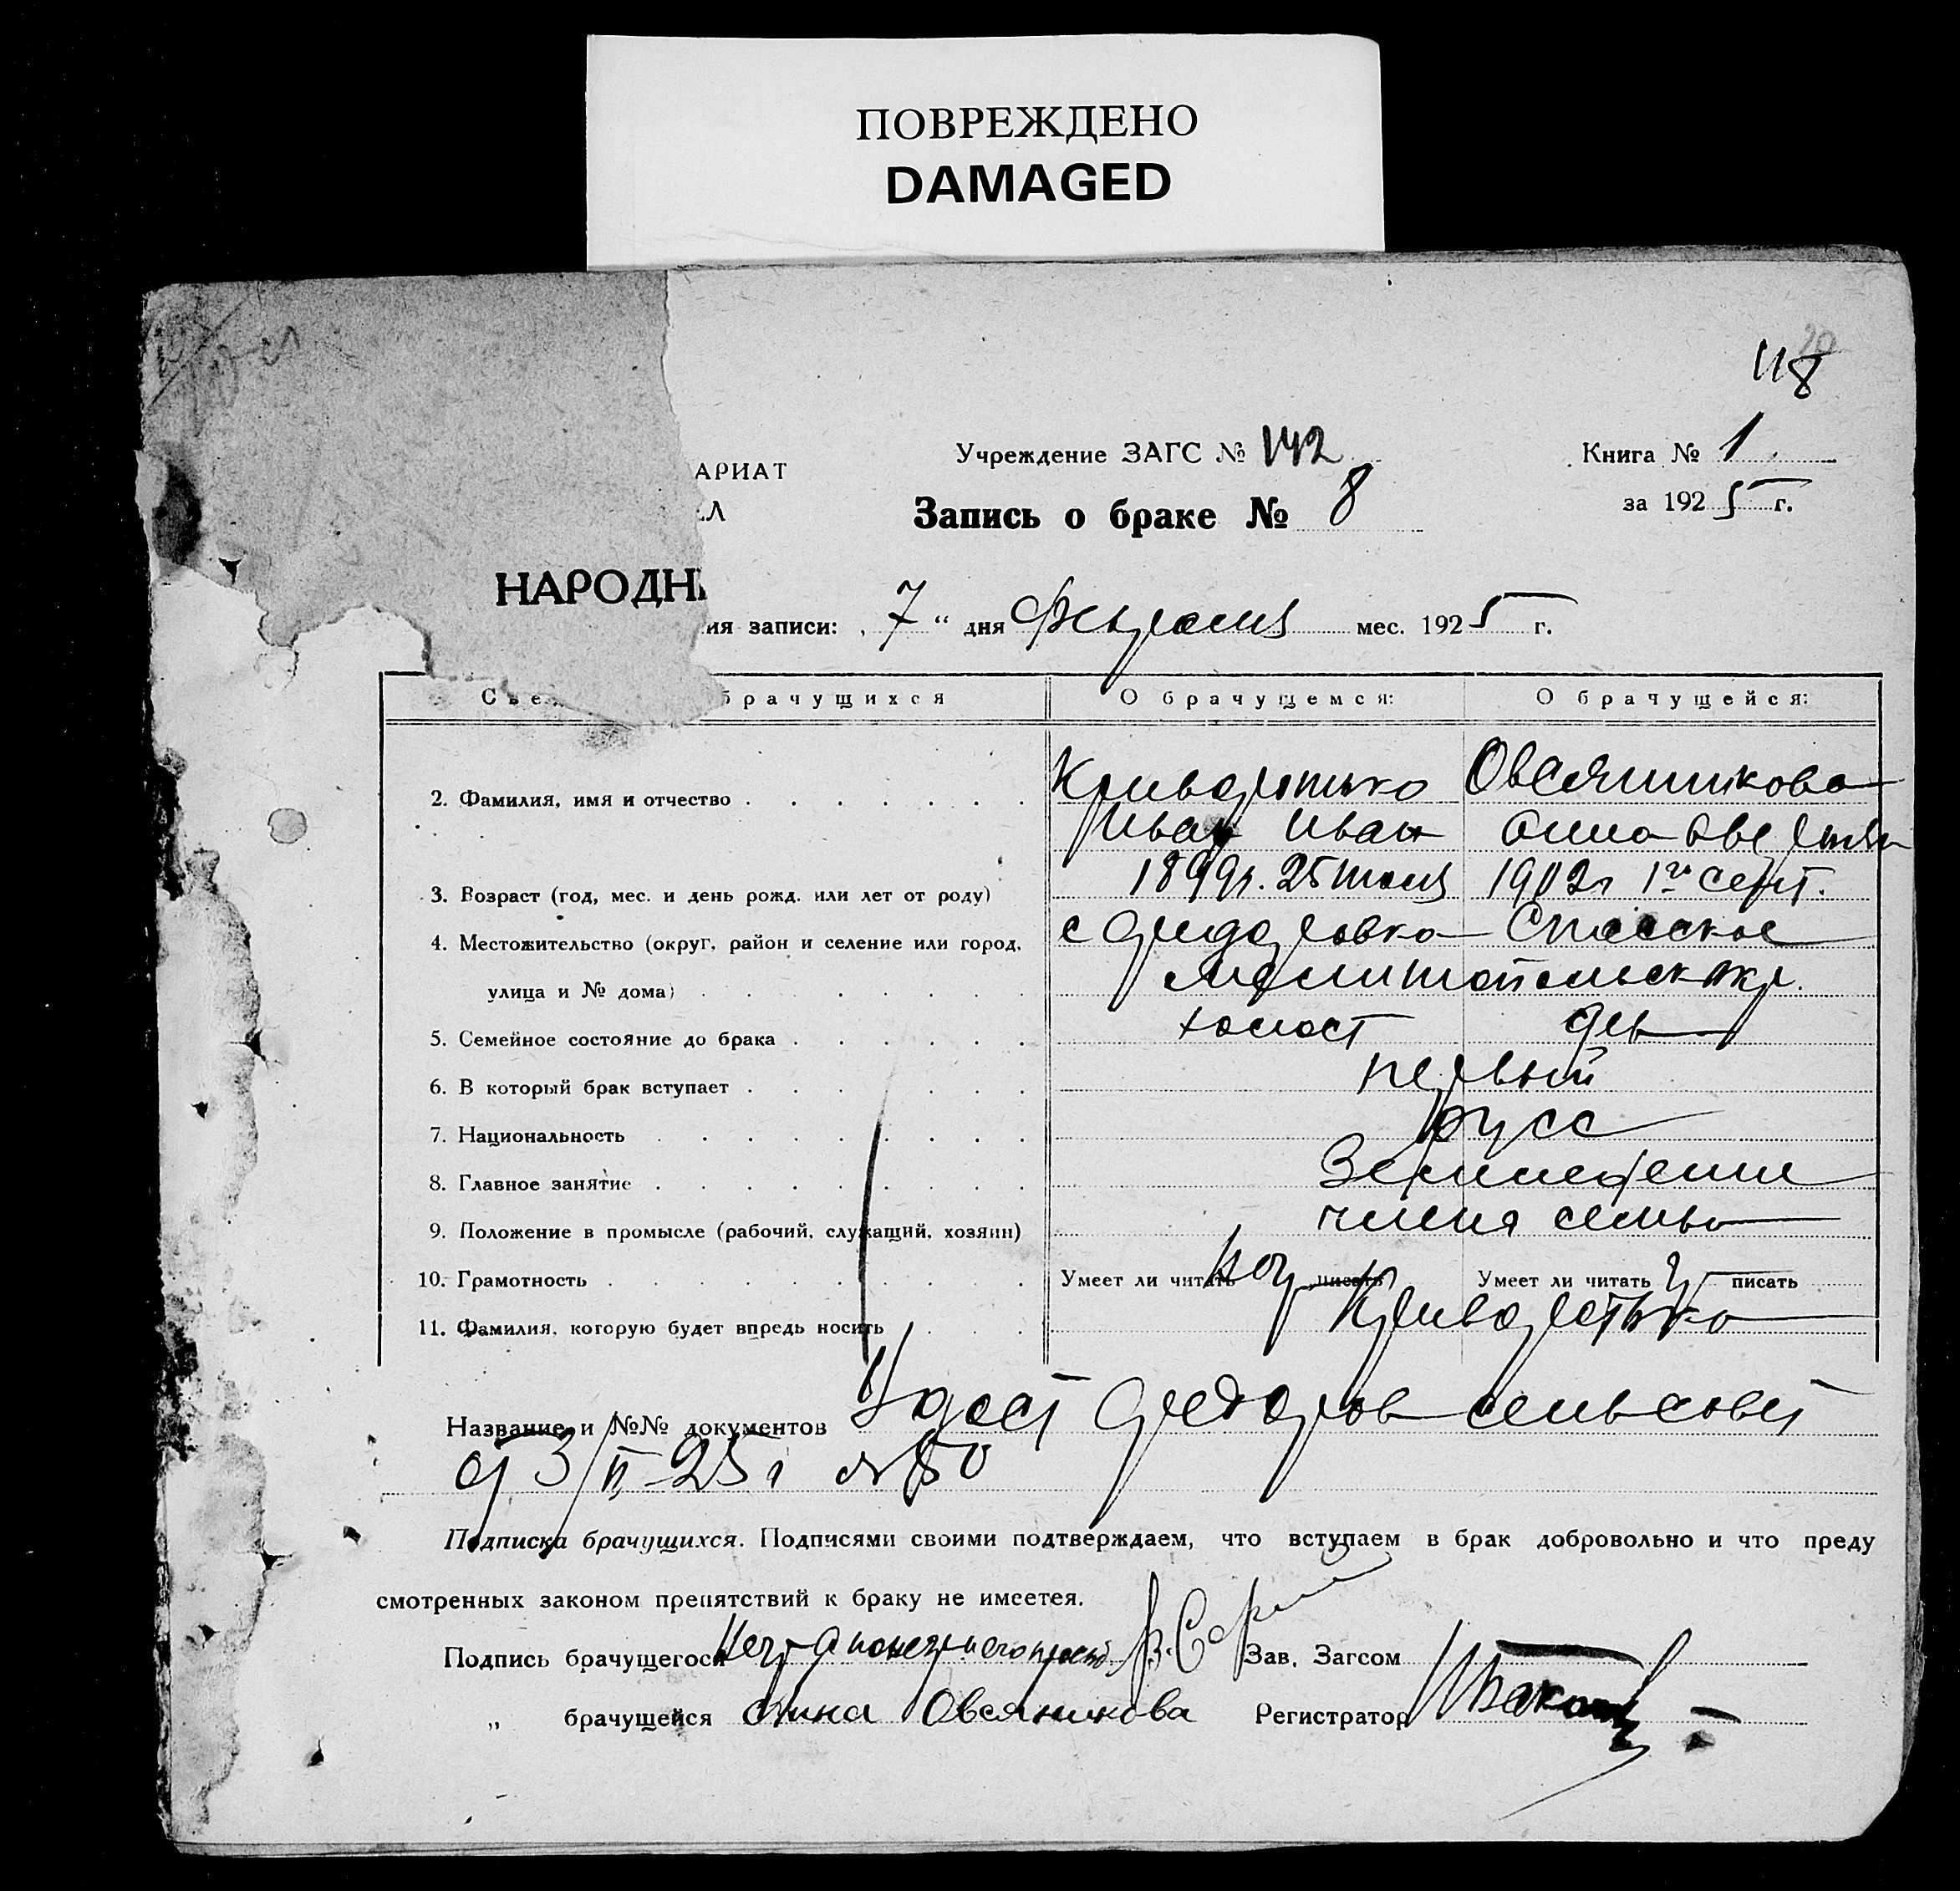 ПОВРЕЖДЕНО
DAMAGED
20
118
АРИАТ
ЕЛ
Учреждение ЗАГС № 142
Книга № 1
Запись о браке № 8
за 1925 г.
НАРОДН
ия записи: „ 7 “ дня Февраля мес. 1925 г.
Све брачущихся
О брачущемся:
О брачущейся:
2. Фамилия, имя и отчество
Криворотько
Овсянникова
Иван Иван
Анна
3. Возраст (год, мес. и день рожд. или лет от роду)
1899г. 25
1902г 1го сент.
4. Местожительство (округ, район и селение или город,
с Федоровка Спасское
улица и № дома)
Мелитопольск окр.
5. Семейное состояние до брака
холост
дев
6. В который брак вступает
первый
7. Национальность
русс
8. Главное занятие
Земледелие
9. Положение в промысле (рабочий, служащий, хозяин)
члена семьи
10. Грамотность
Умеет ли читать писать
Умеет ли читать писать
11. Фамилия, которую будет впредь носить
Криворотько
Название и №№ документов Удост Федоров сельсовет
от 3/II-25 г № 80
Подписка брачущихся. Подписями своими подтверждаем, что вступаем в брак добровольно и что преду
смотренных законом препятствий к браку не имеется.
Подпись брачущегося
Зав. Загсом
„ брачущейся Анна Овсяникова
Регистратор